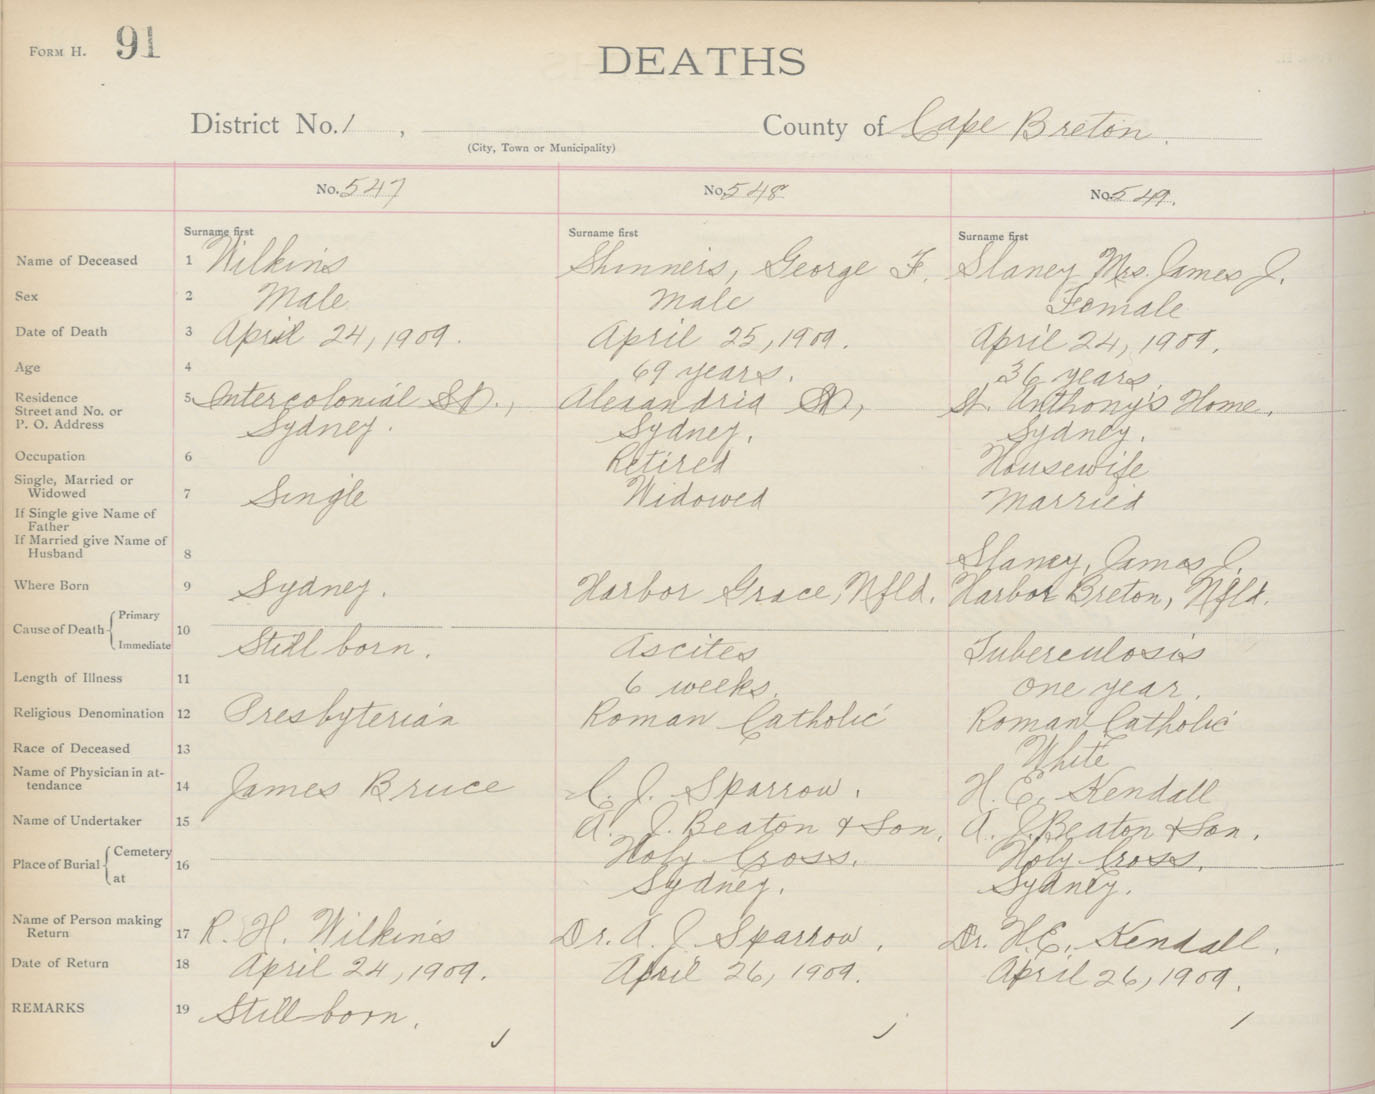 FORM H. 91
DEATHS
District No. 1 , County of Cape Breton.
(City, Town or Municipality)
No. 547 No. 548 No. 549.
Surname first Surname first Surname first
Name of Deceased 1 Wilkins Shinners, George F. Slaney Mrs. James J.
Sex 2 Male Male Female
Date of Death 3 April 24, 1909. April 25, 1909. April 24, 1909.
Age 4 69 years. 36 years
Residence 5 Intercolonial St., Alexandria St., St. Anthony's Home,
Street and No. or
P. O. Address Sydney. Sydney. Sydney.
Occupation 6 Retired Housewife
Single, Married or
Widowed 7 Single Widowed Married
If Single give Name of
Father
If Married give Name of
Husband 8 Slaney, James J.
Where Born 9 Sydney. Harbor Grace, Nfld. Harbor Breton, Nfld.
Primary
Cause of Death 10
Immediate Still born. Ascites Tuberculosis
Length of Illness 11 6 weeks. One year.
Religious Denomination 12 Presbyterian Roman Catholic Roman Catholic
Race of Deceased 13 White
Name of Physician in at-
tendance 14 James Bruce C. J. Sparrow. H. E. Kendall
Name of Undertaker 15 A. J. Beaton & Son. A. J. Beaton & Son.
Cemetery Holy Cross. Holy Cross.
Place of Burial 16
at Sydney. Sydney.
Name of Person making
Return 17 R. H. Wilkins Dr. A. J. Sparrow. Dr. H. E. Kendall.
Date of Return 18 April 24, 1909. April 26, 1909. April 26, 1909.
REMARKS 19 Still born.